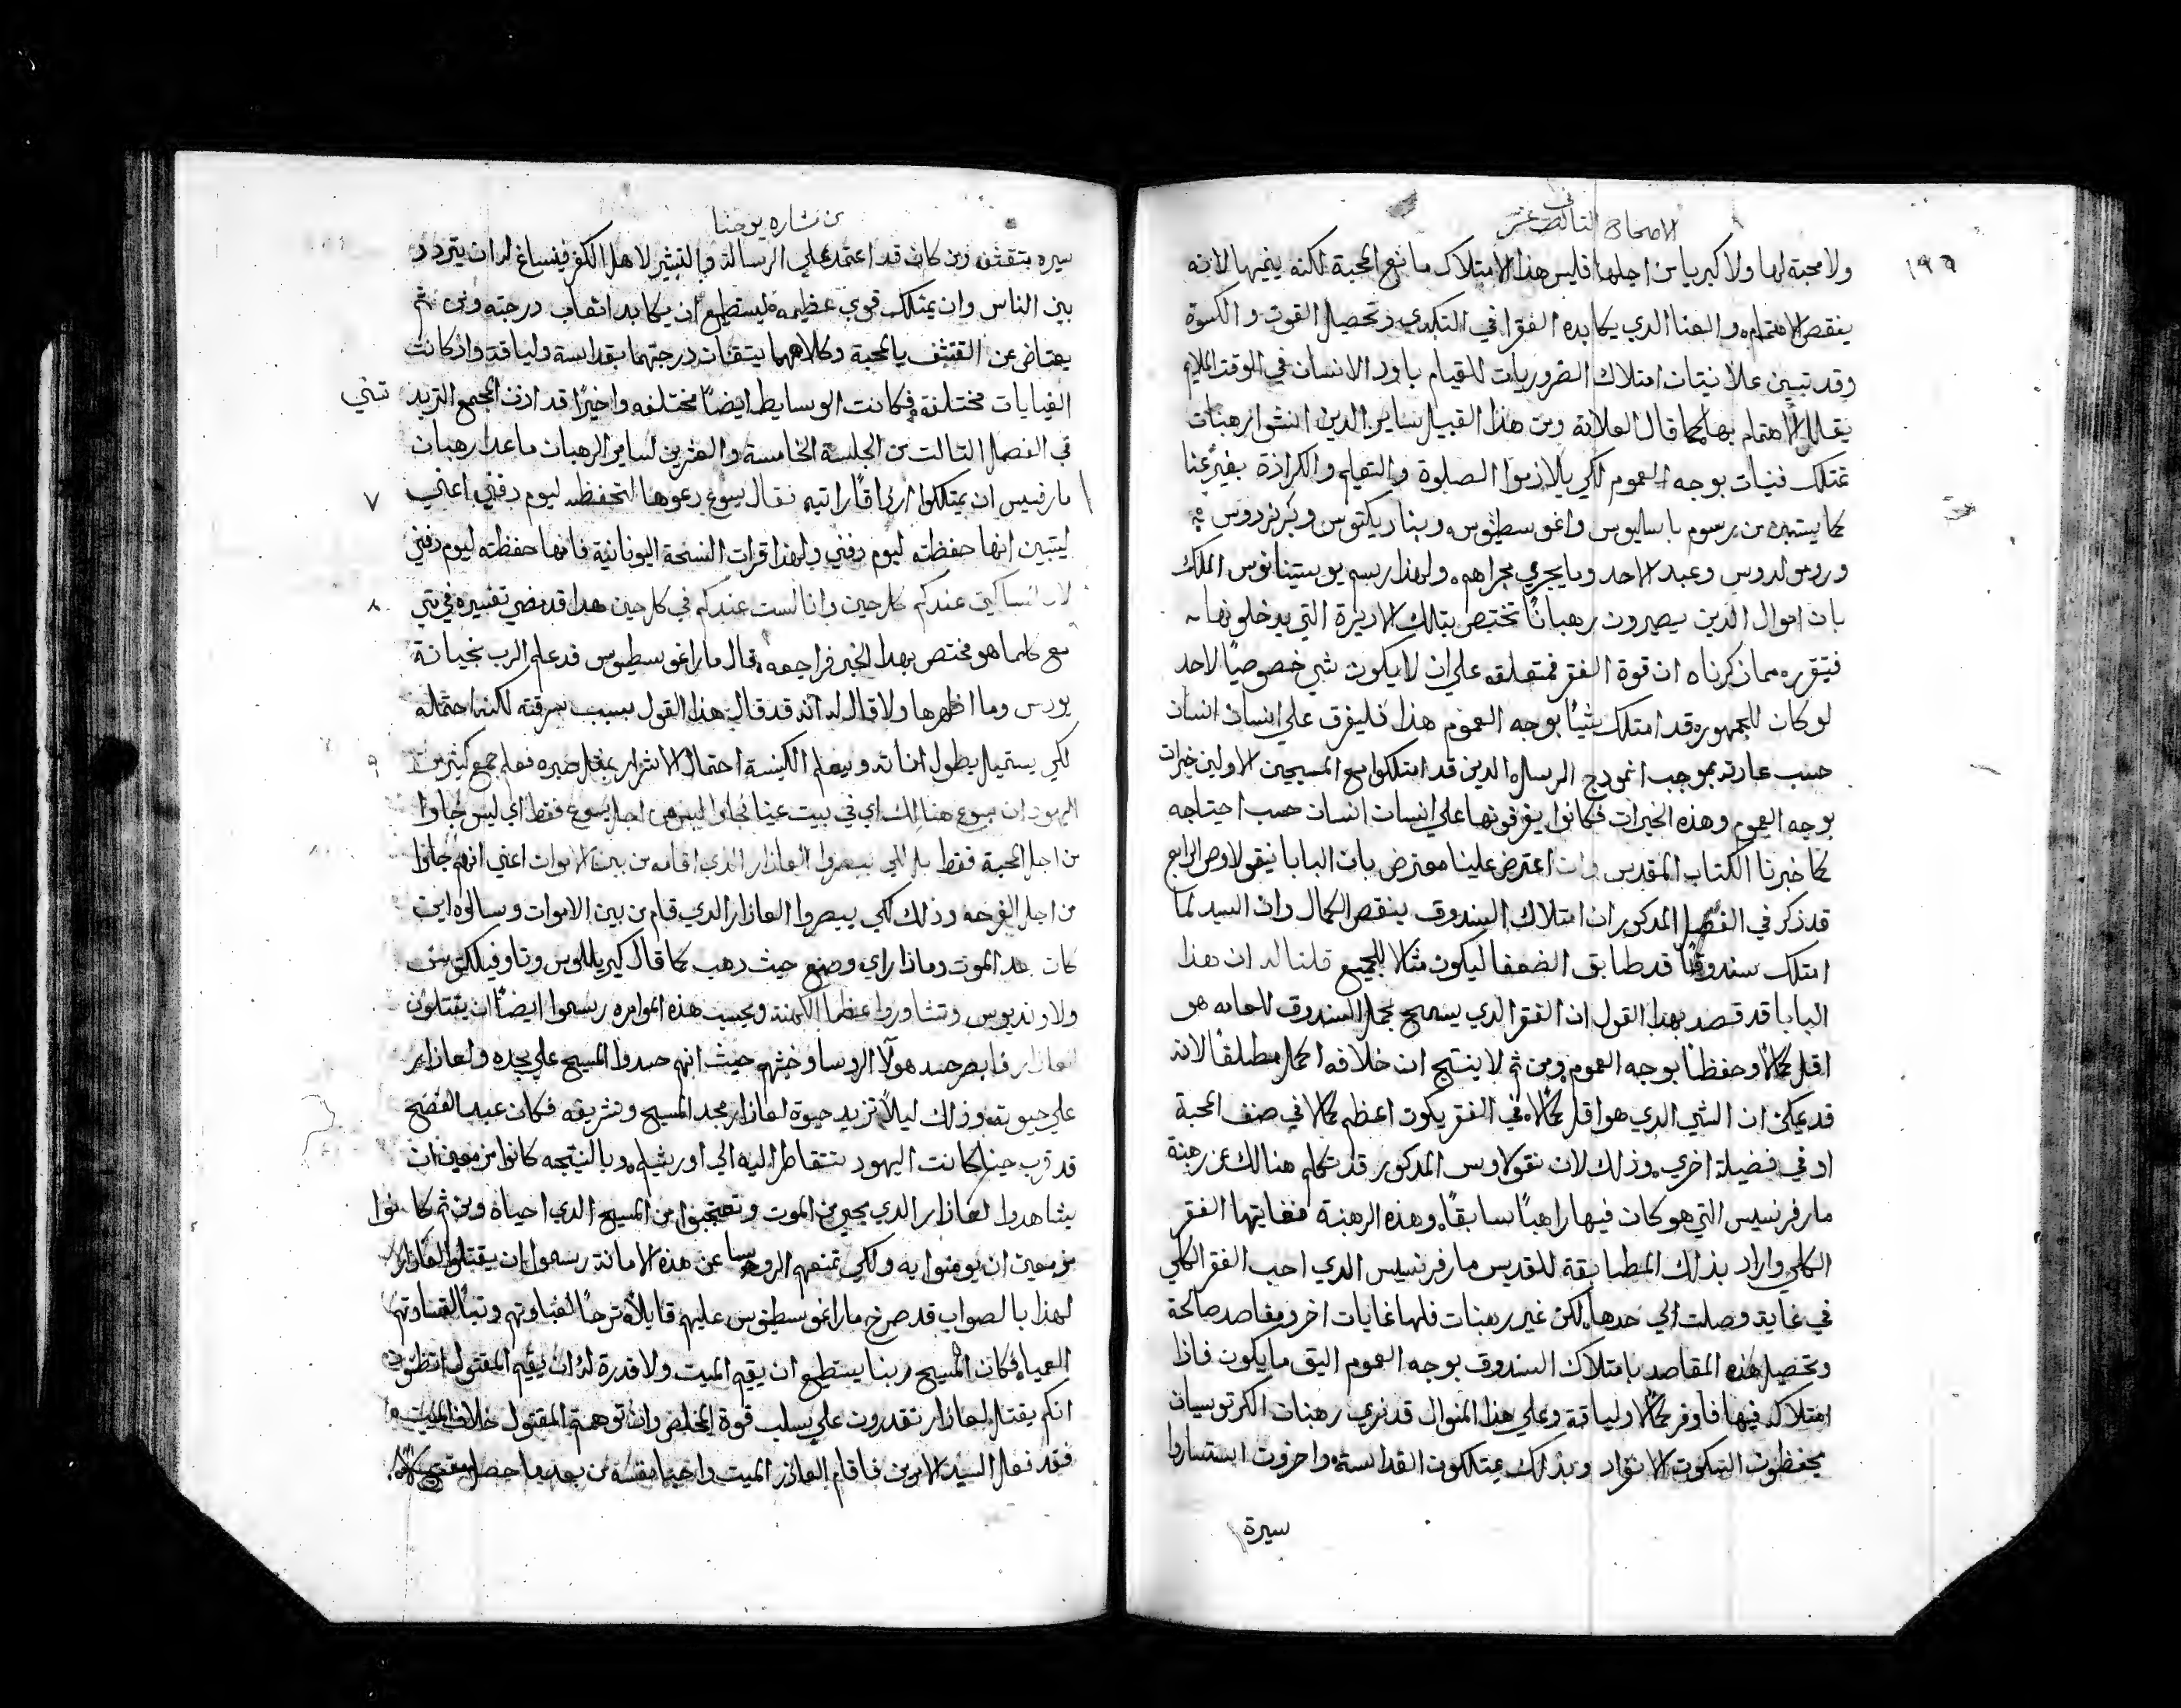 الاصحاح الثاني عشر
١٩٩
ولا محبة لها ولا كبريا من اجلها فليس هذا الامتلاك مانع المحبة لكنه يفيها لانه
ينقص الاهتمام والعنا الدي يكابده الفقرا في التكدي وتحصيل القوت والكسوة
وقد تبين علانيتا ان امتلاك الضروريات للقيام باود الانسان في الوقت الملايم
يقلل الاهتمام بها كما قال العلامة ومن هذا القبيل ساير الدين انشوا رهبنات
تمتلك قنيات بوجه العموم لكي يلازموا الصلوة والتعليم والكرازة بغير عنا
كما يستبين من رسوم باسيليوس واغوسطينوس وبناديكتوس وبرنردوس
وروموالدوس وعبد الاحد وما يجري مجراهم ولهذا رسم يوستينانوس الملك
بان اموال الدين يصيرون رهبانًا تختص بتلك الاديرة التي يدخلونها
فيتقرر مما ذكرناه ان قوة الفقر متعلقه علي ان لا يكون شي خصوصيًا لاحد
لو كان للجمهور قد امتلك شيًا بوجه العموم هذا فليفرق علي انسان انسان
حسب عازته بموجب انمودج الرسل الدين قد امتلكوا مع المسيحيين الاولين خيرات
بوجه العموم وهذه الخيرات فكانوا يفرقونها علي انسان انسان حسب احتياجه
كما خبرنا الكتاب المقدس وان اعترض علينا معترض بان البابا نيقولاوس الرابع
قد ذكر في الفصل المدكور ان امتلاك السندوق ينقص الكمال وان السيد لما
امتلك سندوقًا قد طابق الضعفا ليكون مثلا للجميع قلنا له ان هذا
البابا قد قصد بهدا القول ان الفقر الدي يسمح بحمل السندوق للعامه هو
اقل كمالا وحفظًا بوجه العموم ومن ثم لا ينتج ان خلافه اكمل مطلقًا لانه
قد يمكن ان الشي الدي هو اقل كمالا في الفقر يكون اعظم كمالا في صنف المحبة
او في فضيلة اخري وذلك لان نيقولاوس المدكور قد تكلم هنالك عن رهبنة
مار فرنسيس التي هو كان فيها راهبًا سابقًا وهذه الرهبنة فغايتها الفقر
الكلي واراد بذلك المطابقة للقديس مار فرنسيس الدي احب الفقر الكلي
في غاية وصلت الي حدها لكن غير رهبنات فلها غايات اخر ومقاصد صالحة
وتحصيل هذه المقاصد بامتلاك السندوق بوجه العموم اليق ما يكون فاذا
امتلاكه فيها فاوفر كمالا ولياقة وعلي هذا المنوال قد نري رهبنات الكرتوسيان
يحفظون السكوت الانفراد وبذلك يمتلكون القداسة واخرون استساروا
سيرة
من بشاره يوحنا
سيره بتقشف ومن كان قد اعتمد علي الرسالة والتبشير لاهل الكفر فينساغ له ان يتردد
بين الناس وان يمتلك قوي عظيمه ليستطيع ان يكابد اتعاب درجته ومن ثم
يعتاض عن القشف بالمحبة وكلاهما يتقنان درجتهما بقداسة ولياقة واذ كانت
الغايات مختلفة فكانت الوسايط ايضًا مختلفه واخيرًا قد اذن المجمع التريد
نتيني
في الفصل التالت من الجلسة الخامسة والعشرين لساير الرهبان ماعدا رهبان
مار فرنسيس ان يمتلكوا ارزاقًا راتبه فقال يسوع دعوها لتحفظه ليوم دفني اعني
٧
ليتبين انها حفظته ليوم دفني ولهذا قرات النسخة اليونانية فانها حفظته ليوم دفني
لان المساكين عندكم كل حين وانا لست عندكم في كل حين هدا قد مضي تفسيره في متي
٨
مع كلما هو مختص بهدا الخبر فراجعه قال مار اغوسطينوس قد علم الرب بخيانة
يودس وما اظهرها ولا قال له انه قد قال هذا القول بسبب سرقته لكنه احتمله
لكي يستميله بطول اناته ويعلم الكنيسة احتمال الاشرار بمثل صبره فعلم جمع كثير من
٩
اليهود ان يسوع هنالك اي في بيت عنيا فجاوا ليس من اجل يسوع فقط اي ليس جاوا
من اجل المحبة فقط بل لكي يبصروا العازار الذي اقامه من بين الاموات اعني انهم جاوا
من اجل الفرجه وذلك لكي يبصروا العازار الدي قام من بين الاموات وسالوه اين
كان بعد الموت وماذا راي وصنع حيث دهب كما قال كيريللوس وتاوفيلكتوس
ولاونديوس وتشاوروا عظما الكهنة وبحسب هذه الموامره رسموا ايضًا ان يقتلون
لعازار فابصر حسد هولآ الروسا وخبثهم حيث انهم حسدوا المسيح علي مجده ولعازار
علي حيوته وذلك ليلا تزيد حيوة لعازار مجد المسيح وتشريفه فكان عيد الفصح
قد قرب حينما كانت اليهود تتقاطر اليه الي اورشليم وبالنتيجه كانوا مزمعين ان
يشاهدوا لعازار الدي يحيي من الموت وتعجبوا من المسيح الدي احياه ومن ثم كانوا
مزمعين ان يومنوا به ولكي تمنعهم الروسا عن هذه الامانة رسموا ان يقتلوا لعازار
لهذا بالصواب قد صرخ مار اغوسطينوس عليهم قايلا ترحًا لغباوتهم وتبًا لقساوتهم
العميا فكان المسيح ربنا يستطيع ان يقيم الميت ولا قدرة له ان يقيم المقتول اتظنون
انكم بقتل لعازار تقدرون علي سلب قوة المخلص وان توهمتم المقتول خلاف الميت
فقد فعل السيد الامرين فاقام العازر الميت واحيا نفسه من بعد ما حصل